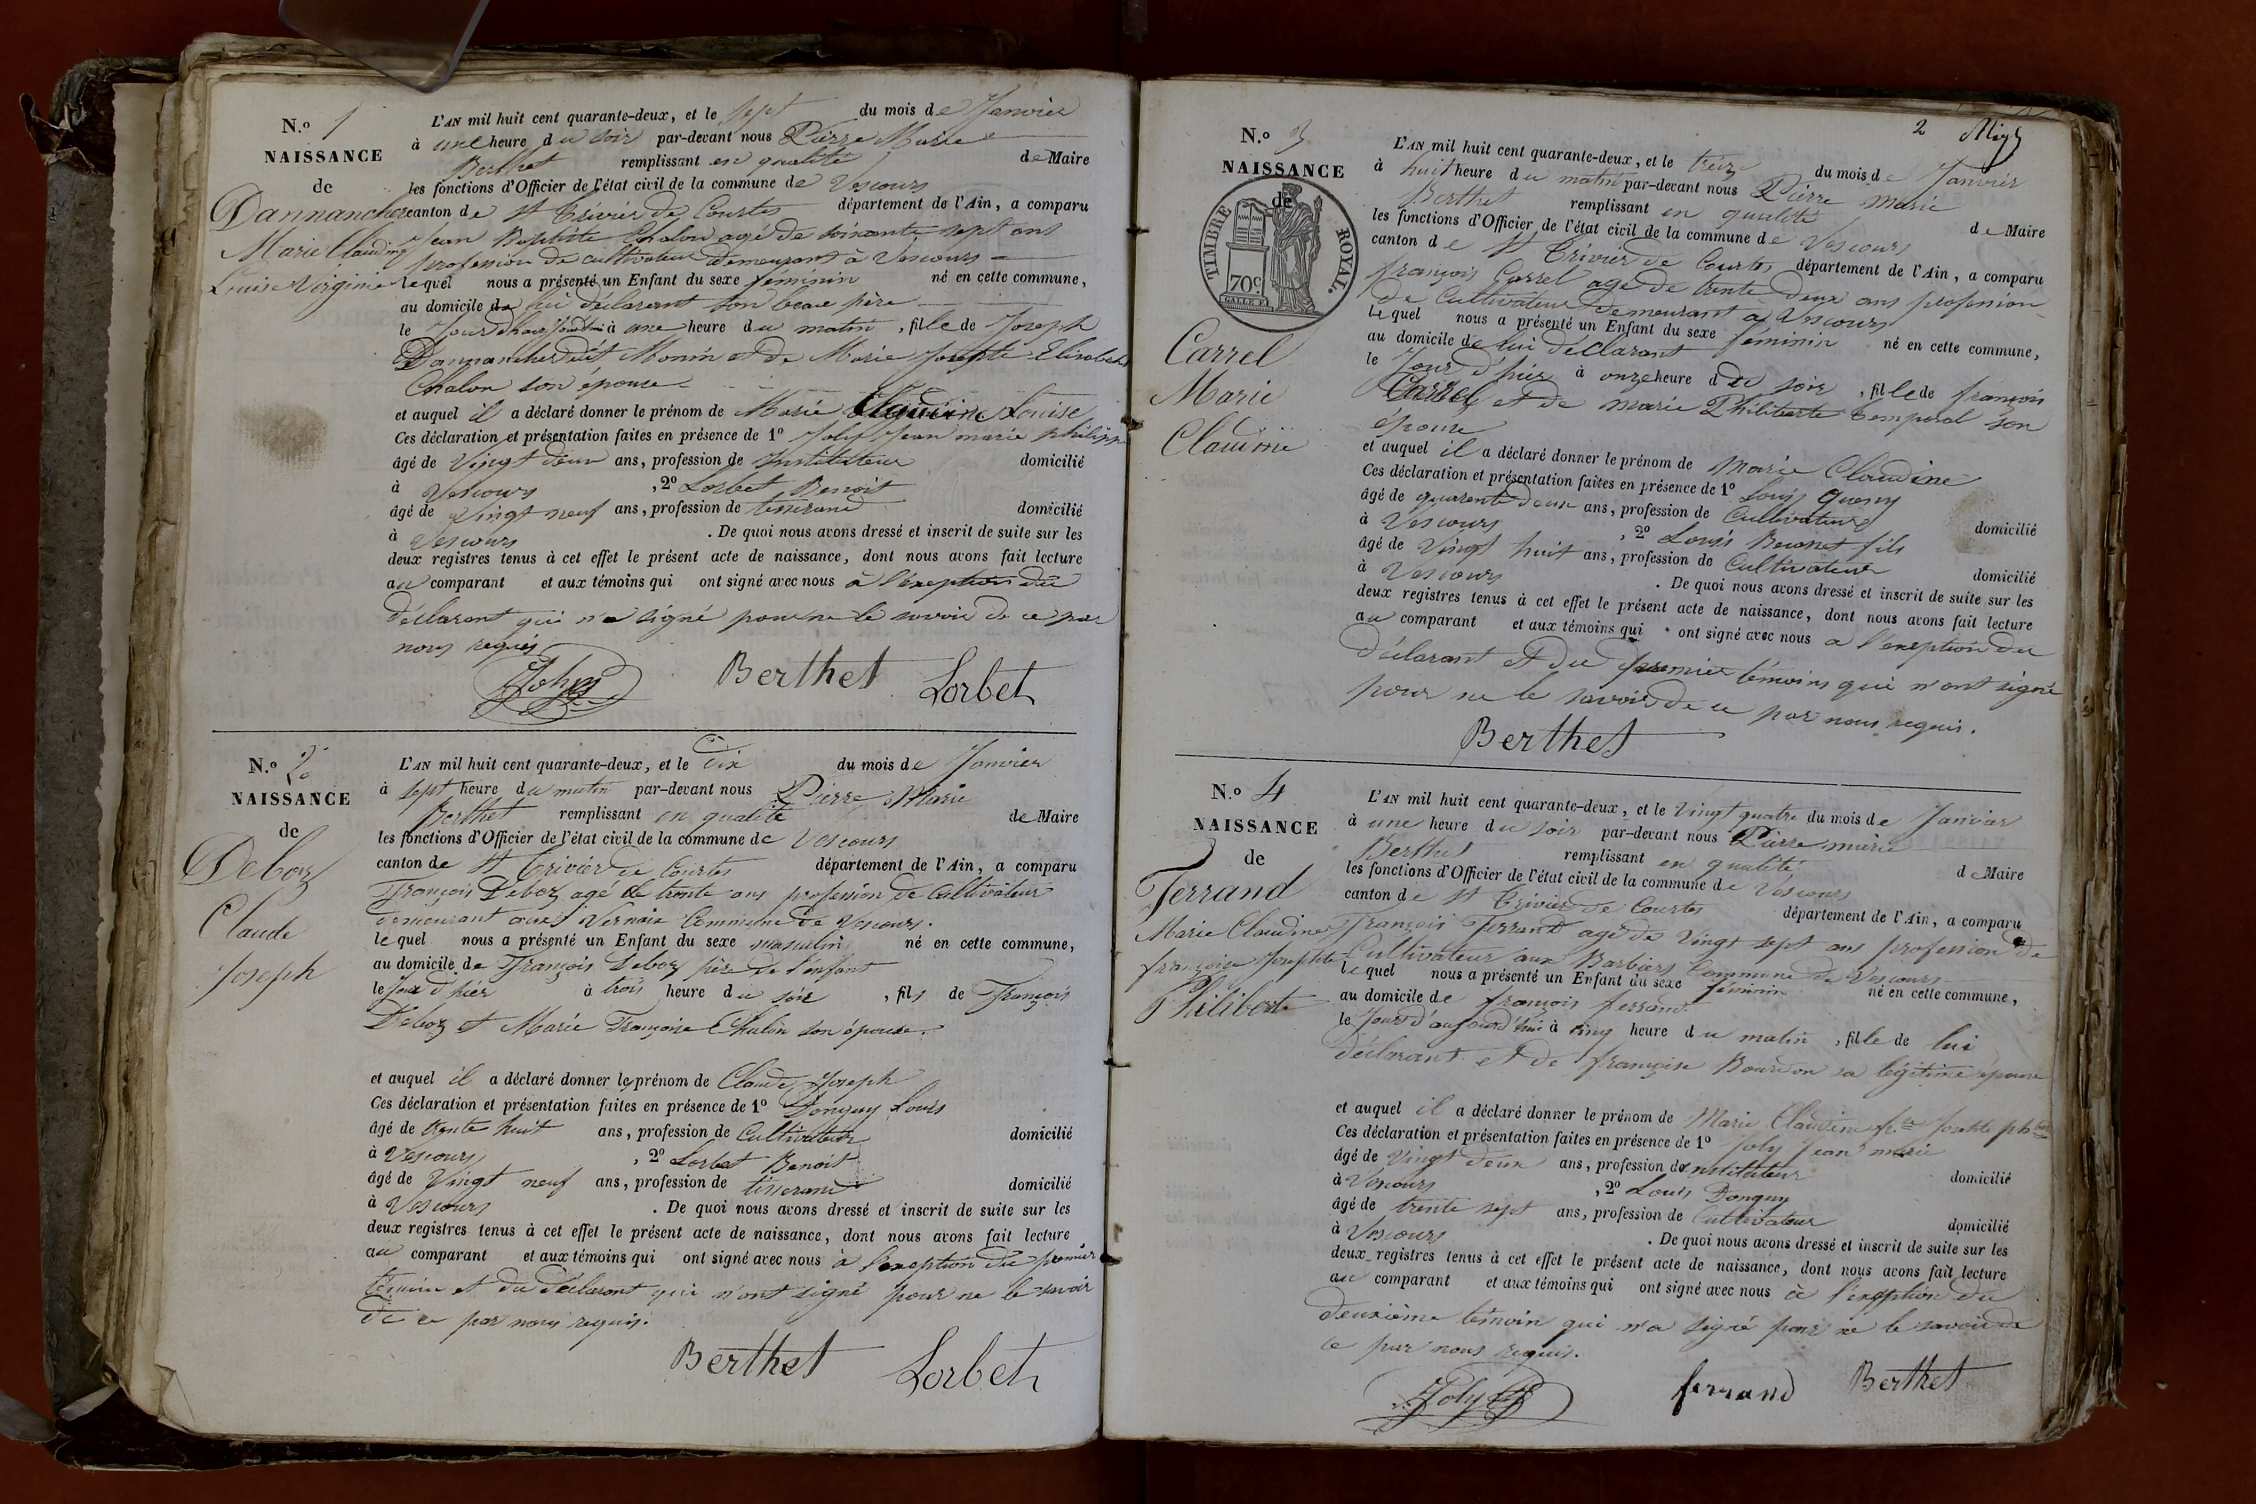 N.o 1
NAISSANCE
de
Dannancher
Marie Claudine
Louise Virginie
L'AN mil huit cent quarante-deux, et le sept du mois de Janvier
à une heure du soir par-devant nous Pierre Marie
Berthet remplissant en qualité de Maire
les fonctions d'Officier de l'état civil de la commune de Vescours
canton de St Trivier de Courtes département de l'Ain, a comparu
Jean Baptiste Chalon agé de soixante sept ans
profession de cultivateur demeurant à Vescours
lequel nous a présenté un Enfant du sexe féminin né en cette commune,
au domicile de lui déclarant son beau père
le Jour à une heure du matin, fille de Joseph
Dannancher dit Monin et de Marie Josephte Elisabeth
Chalon son épouse
et auquel il a déclaré donner le prénom de Marie Claudine Louise
Ces déclaration et présentation faites en présence de 1o Joly Jean marie philippe
âgé de Vingt deux ans, profession de Instituteur domicilié
à Vescours, 2o Lorbet Benoit
âgé de Vingt neuf ans, profession de tisserand domicilié
à Vescours. De quoi nous avons dressé et inscrit de suite sur les
deux registres tenus à cet effet le présent acte de naissance, dont nous avons fait lecture
au comparant et aux témoins qui ont signé avec nous à l'exception du
déclarant qui n'a signé pour ne le savoir de ce par
nous requis
Joly Berthet Lorbet
N.o 2
NAISSANCE
de
Deboz
Claude
Joseph
L'AN mil huit cent quarante-deux, et le dix du mois de Janvier
à sept heure du matin par-devant nous Pierre Marie
Berthet remplissant en qualité de Maire
les fonctions d'Officier de l'état civil de la commune de Vescours
canton de St Trivier de Courtes département de l'Ain, a comparu
François Deboz agé de trente ans profession de Cultivateur
demeurant aux Vernaix Commune de Vescours.
lequel nous a présenté un Enfant du sexe masculin né en cette commune,
au domicile de François Deboz père de l'enfant
le Jour d'hier à trois heure du soir, fils de François
Deboz et Marie Françoise Chalon son épouse.
et auquel il a déclaré donner le prénom de Claude Joseph
Ces déclaration et présentation faites en présence de 1o Donguy Louis
âgé de trente huit ans, profession de Cultivateur domicilié
à Vescours, 2o Lorbet Benoit
âgé de Vingt neuf ans, profession de tisserand domicilié
à Vescours. De quoi nous avons dressé et inscrit de suite sur les
deux registres tenus à cet effet le présent acte de naissance, dont nous avons fait lecture
au comparant et aux témoins qui ont signé avec nous à l'exception du premier
témoin et du déclarant qui n'ont signé pour ne le savoir
de ce par nous requis.
Berthet Lorbet
2
N.o 3
NAISSANCE
de
TIMBRE ROYAL.
70c
Carrel
Marie
Claudine
L'AN mil huit cent quarante-deux, et le treize du mois de Janvier
à huit heure du matin par-devant nous Pierre marie
Berthet remplissant en qualité de Maire
les fonctions d'Officier de l'état civil de la commune de Vescours
canton de St Trivier de Courtes département de l'Ain, a comparu
françois Carrel agé de trente deux ans profession
de Cultivateur demeurant à Vescours
lequel nous a présenté un Enfant du sexe féminin né en cette commune,
au domicile de lui déclarant
le Jour d'hier à onze heure du soir, fille de françois
Carrel et de marie Philiberte Temporal son
épouse
et auquel il a déclaré donner le prénom de Marie Claudine
Ces déclaration et présentation faites en présence de 1o Louis
âgé de quarante deux ans, profession de Cultivateur domicilié
à Vescours, 2o Louis fils
âgé de Vingt huit ans, profession de Cultivateur domicilié
à Vescours. De quoi nous avons dressé et inscrit de suite sur les
deux registres tenus à cet effet le présent acte de naissance, dont nous avons fait lecture
au comparant et aux témoins qui ont signé avec nous a l'exception du
déclarant et du premier témoins qui n'ont signé
pour ne le savoir de ce par nous requis.
Berthet
N.o 4
NAISSANCE
de
Ferrand
Marie Claudine
françoise Josephte
Philiberte
L'AN mil huit cent quarante-deux, et le Vingt quatre du mois de Janvier
à une heure du soir par-devant nous Pierre marie
Berthet remplissant en qualité de Maire
les fonctions d'Officier de l'état civil de la commune de Vescours
canton de St Trivier de Courtes département de l'Ain, a comparu
François Ferrand agé de Vingt sept ans profession de
Cultivateur aux Barbiers Commune de Vescours
lequel nous a présenté un Enfant du sexe féminin né en cette commune,
au domicile de françois ferrand
le Jour d'aujourd'hui à cinq heure du matin, fille de lui
déclarant et de françoise Bourdon sa légitime épouse
et auquel il a déclaré donner le prénom de Marie Claudine
Ces déclaration et présentation faites en présence de 1o Joly Jean marie
âgé de Vingt deux ans, profession de Instituteur domicilié
à Vescours, 2o Louis Donguy
âgé de trente sept ans, profession de Cultivateur domicilié
à Vescours. De quoi nous avons dressé et inscrit de suite sur les
deux registres tenus à cet effet le présent acte de naissance, dont nous avons fait lecture
au comparant et aux témoins qui ont signé avec nous à l'exception du
deuxième témoin qui n'a signé pour ne le savoir de
ce par nous requis.
Joly ferrand Berthet